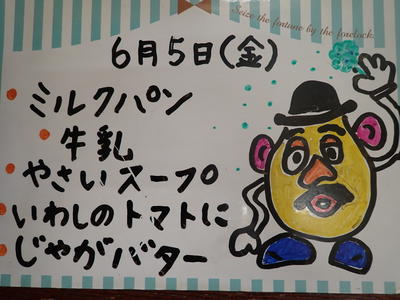 Seize the fortune by the forelock.
6月5日(金)
ミルクパン
牛乳
やさいスープ
いわしのトマトに
じゃがバター